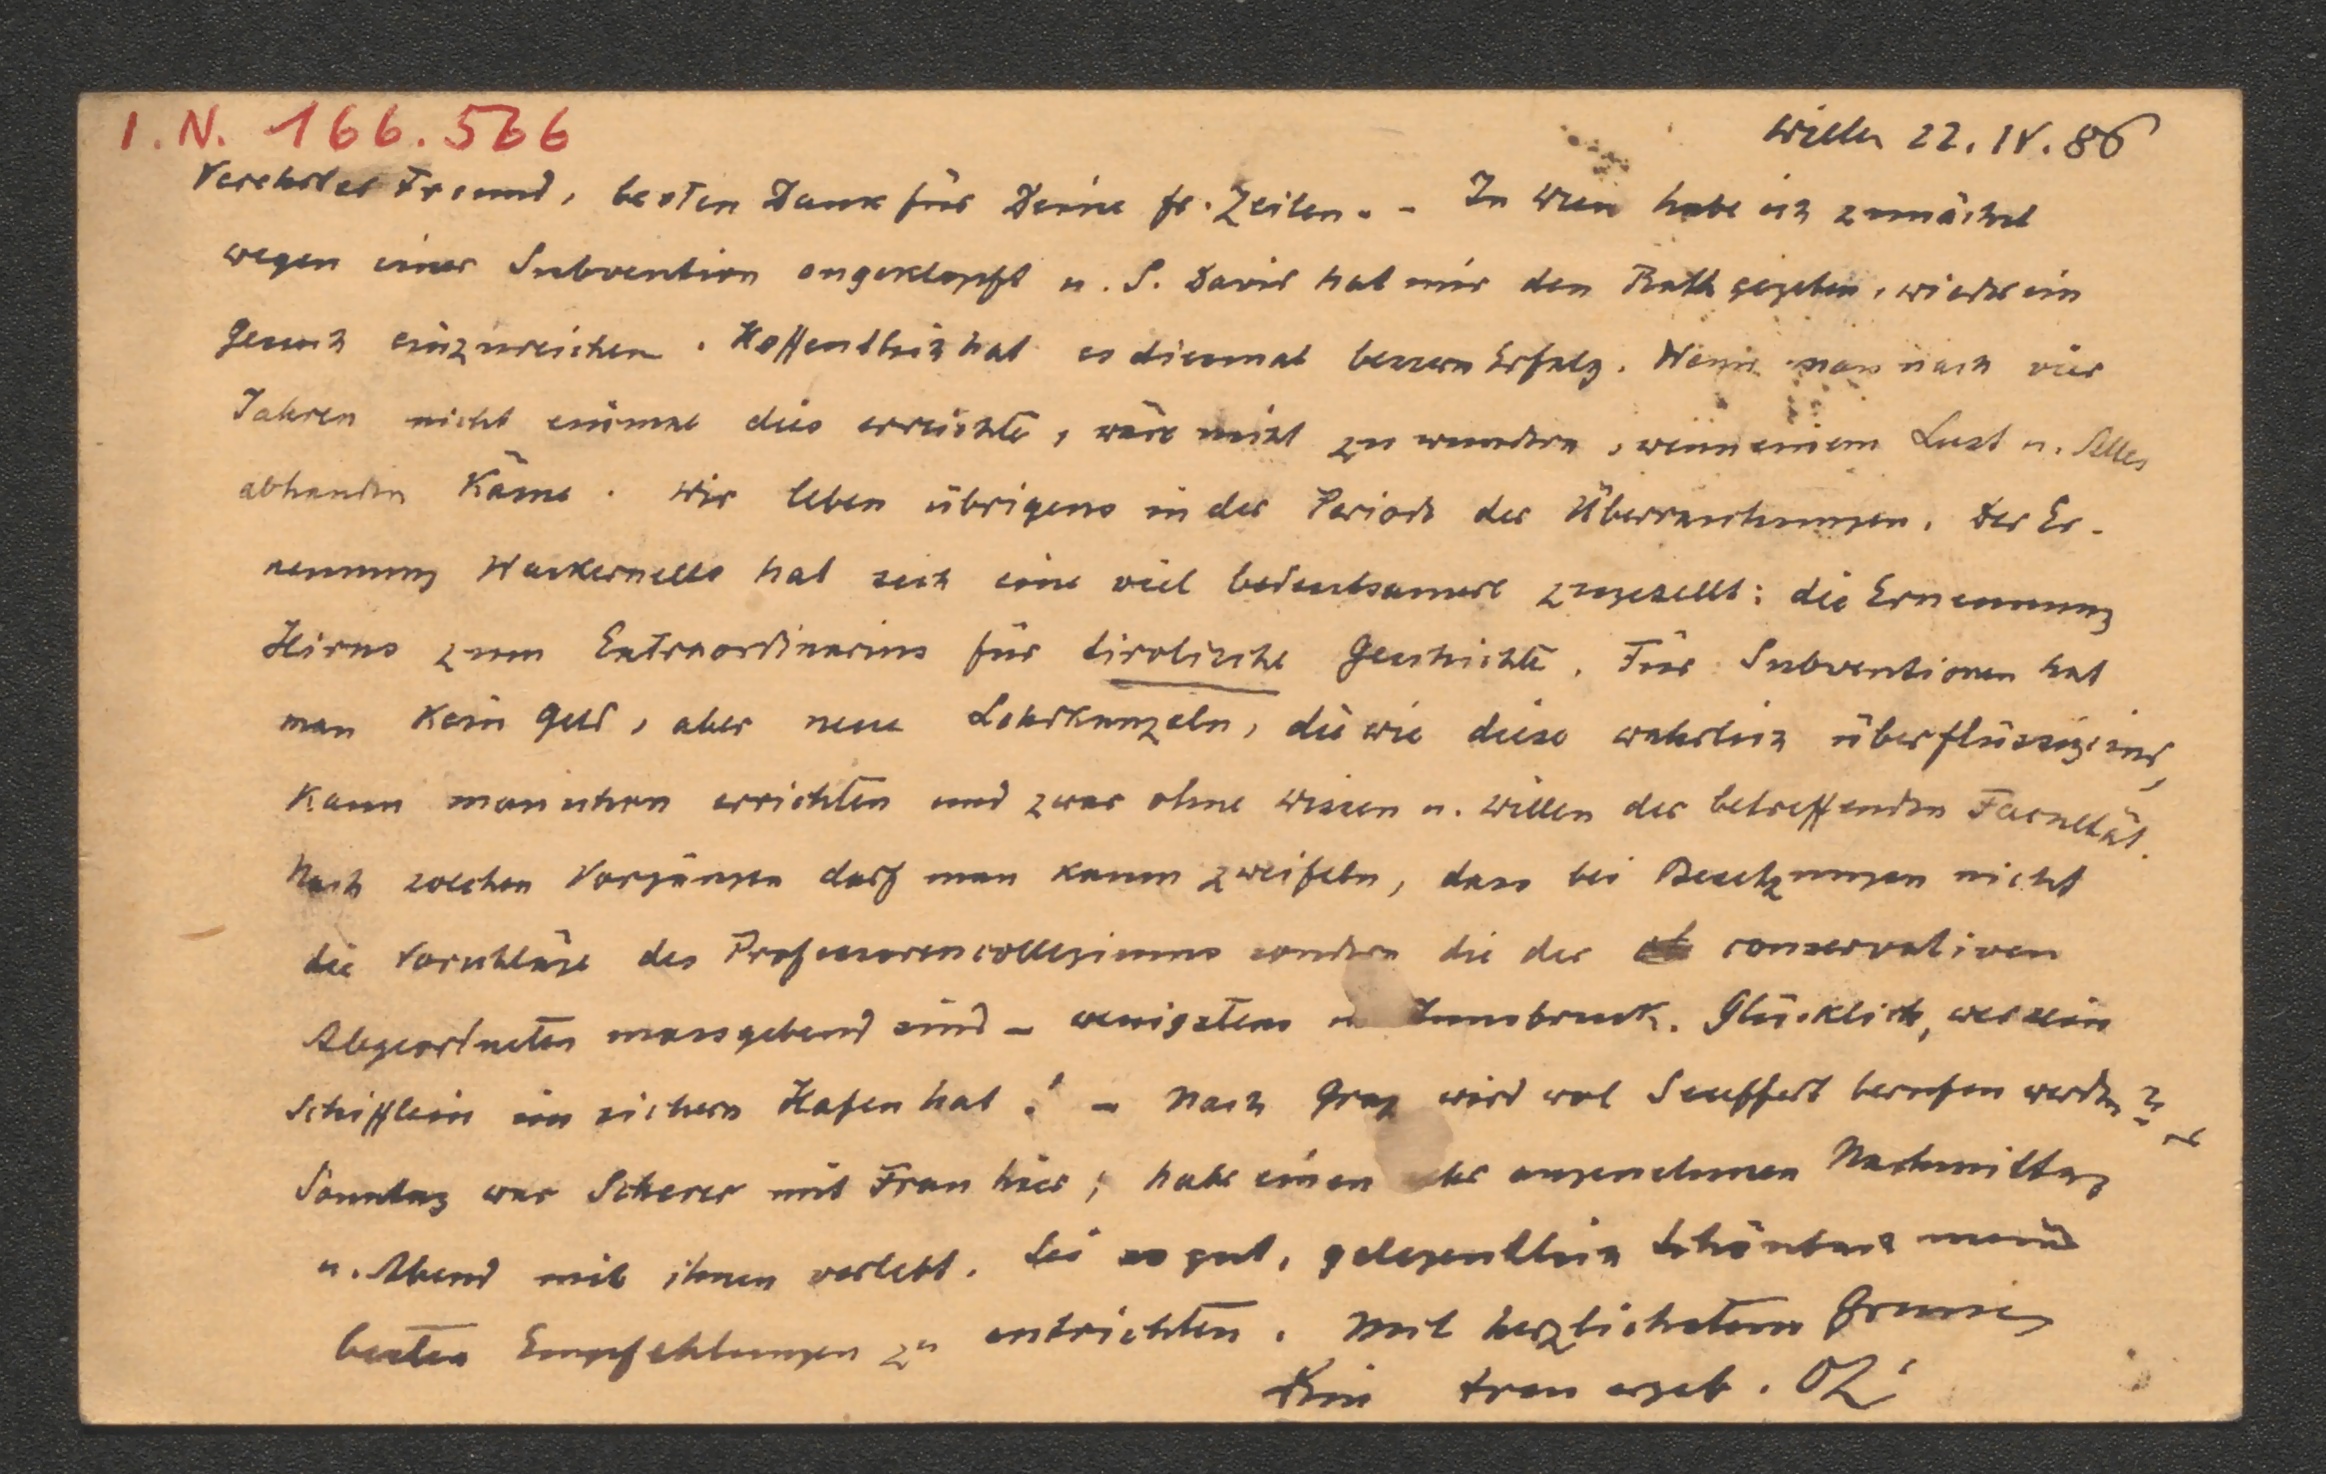 I.N. 166.566
Wilten 22.IV.86
Verehrter Freund, besten Dank für Deine fr. Zeilen. - In Wien habe ich zunächst
wegen einer Subvention angeklopft u. S. David hat mir den Rath gegeben, wieder ein
Gesuch einzureichen. Hoffentlich hat es diesmal bessern Erfolg. Wenn man nach vier
Jahren nicht einmal dies erreichte, wäre nicht zu wundern, wenn einem Lust u. Alles
abhanden käme. Wir leben übrigens in der Periode der Überraschungen. Der Er-
nennung Wackernells hat sich eine viel bedeutsamere zugesellt: die Ernennung
Hirns zum Extraordinarius für tirolische Geschichte. Für Subventionen hat
man kein Geld, aber neue Lehrkanzeln, die wie diese wahrlich überflüssig sind,
kann man schon errichten und zwar ohne Wissen u. Willen der betreffenden Facultät.
Nach solchen Vorgängen darf man kaum zweifeln, dass bei Besetzungen nicht
die Vorschläge des Professorencollegiums sondern die der conservativen
Abgeordneten massgebend sind - wenigstens in Innsbruck. Glücklich, wer sein
Schifflein im sichern Hafen hat! - Nach Graz wird wol Seuffert berufen werden? -
Sonntag war Scherer mit Frau hier; habe einen sehr angenehmen Nachmittag
u. Abend mit ihnen verlebt. Sei so gut, gelegentlich Schönbach meine
besten Empfehlungen zu entrichten. Mit herzlichstem Grusse
Dein treu ergeb. OZ